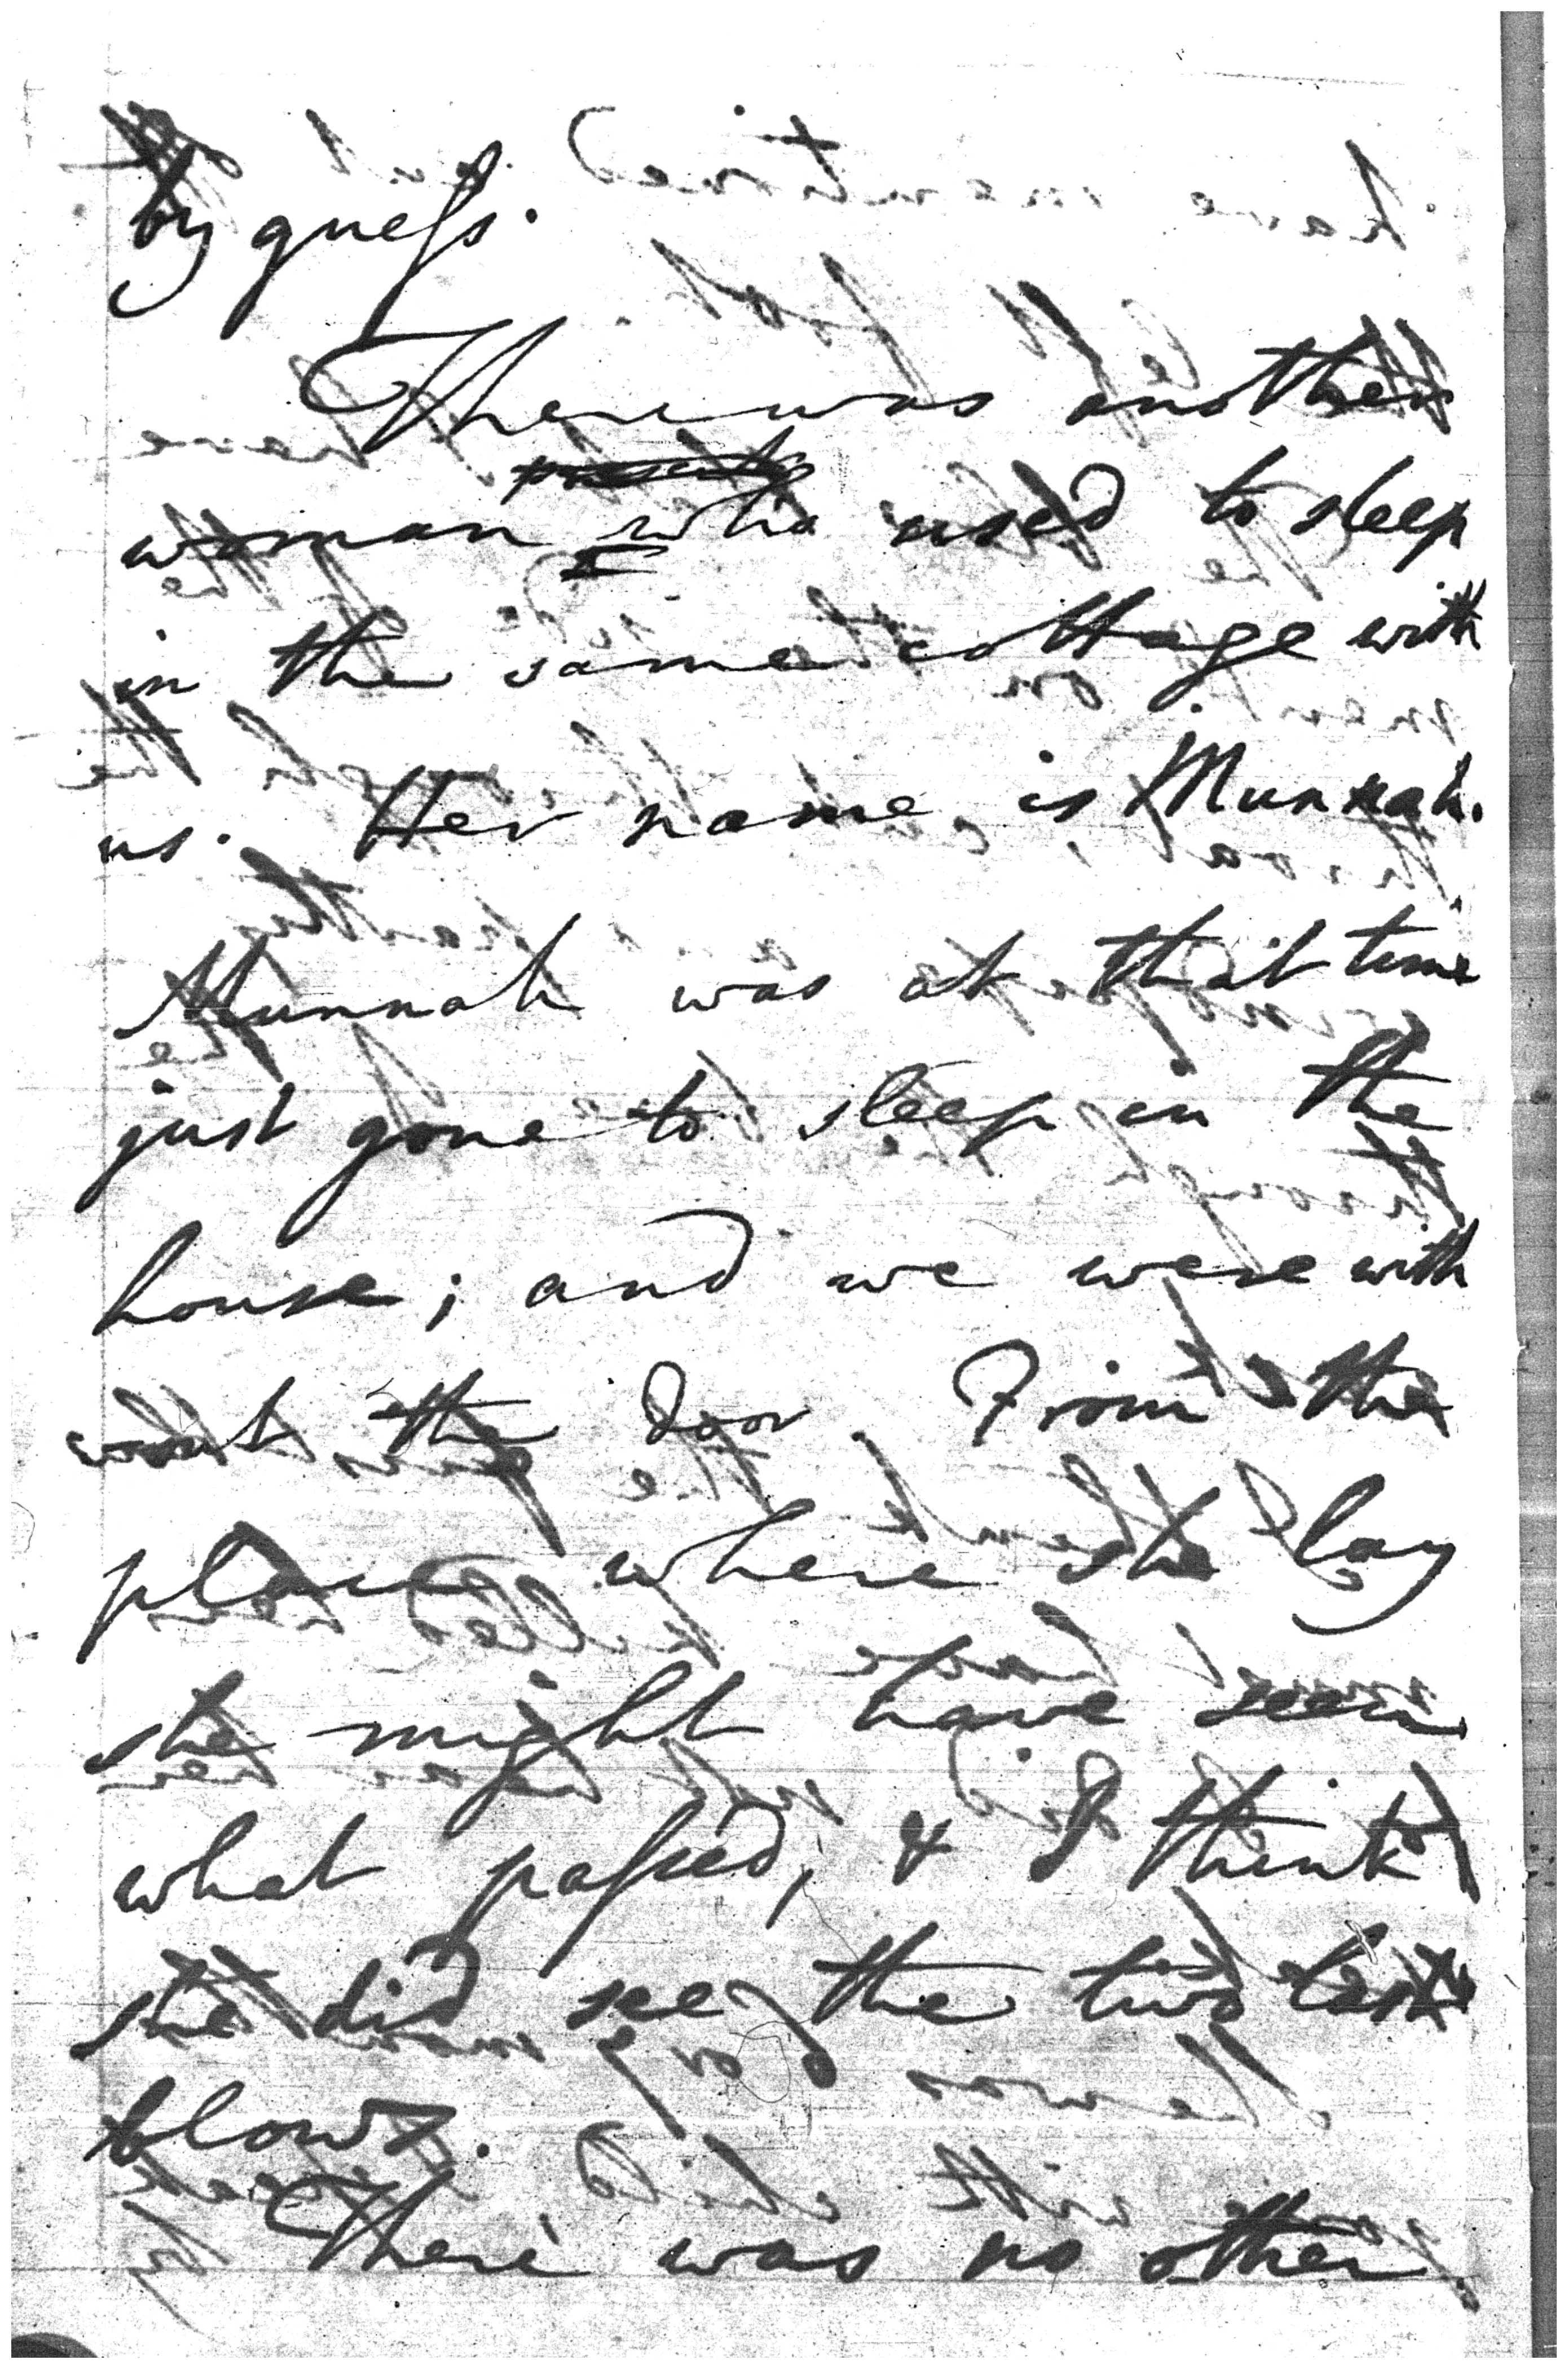 by guess.
There was another
woman who used to sleep
in the same cottage with
us. Her name is Munnah.
Munnah was at that time
just gone to sleep in the
house; and we were with
out the door. From the
place where she lay
she might have seen
what passed; & I think
she did see the two last
blows.
There was no other